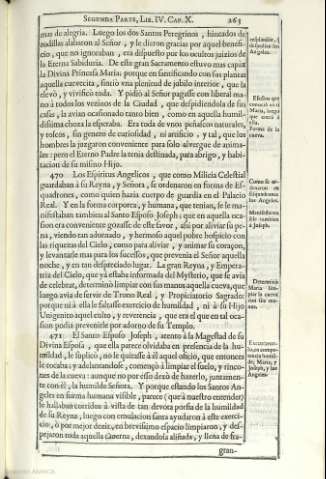 SEGUNDA PARTE, LIB. IV. CAP. X. 263
mas de alegria. Luego los dos Santos Peregrinos, hincados de
rodillas alabaron al Señor, y le dieron gracias por aquel benefi-
cio, que no ignoraban, era dispuesto por los ocultos juizios de
la Eterna Sabiduria. De este gran Sacramento estuvo mas capáz
la Divina Princesa Maria: porque en santificando con sus plantas
aquella cuevecita, sintiò vna plenitud de jubilo interior, que la
elevò, y vivificò toda. Y pidiò al Señor pagasse con liberal ma-
no à todos los vezinos de la Ciudad, que despidiendola de sus
casas, la avian ocasionado tanto bien, como en aquella humil-
dissima choza la esperaba. Era toda de vnos peñascos naturales,
y toscos, sin genero de curiosidad, ni artificio, y tal, que los
hombres la juzgaron conveniente para solo alvergue de anima-
les: pero el Eterno Padre la tenia destinada, para abrigo, y habi-
tacion de su mismo Hijo.
470. Los Espiritus Angelicos, que como Milicia Celestial
guardaban à su Reyna, y Señora, se ordenaron en forma de Es-
quadrones, como quien hazia cuerpo de guardia en el Palacio
Real. Y en la forma corporea, y humana, que tenian, se le ma-
nifestaban tambien al Santo Esposo Joseph: que en aquella oca-
sion era conveniente gozasse de este favor, assi por aliviar su pe-
na, viendo tan adornado, y hermoso aquel pobre hospicio con
las riquezas del Cielo, como para aliviar, y animar su coraçon,
y levantarle mas para los sucessos, que prevenia el Señor aquella
noche, y en tan despreciado lugar. La gran Reyna, y Empera-
triz del Cielo, que yà estaba informada del Mysterio, que se avia
de celebrar, determinò limpiar con sus manos aquella cueva, que
luego avia de servir de Trono Real, y Propiciatorio Sagrado:
porque ni à ella le faltasse exercicio de humildad, ni à su Hijo
Unigenito aquel culto, y reverencia, que era el que en tal oca-
sion podia prevenirle por adorno de su Templo.
471. El Santo Esposo Joseph, atento à la Magestad de su
Divina Esposa, que ella parece olvidaba en presencia de la hu-
mildad, le suplicò, no le quitasse à èl aquel oficio, que entonces
le tocaba; y adelantandose, començò à limpiar el suelo, y rinco-
nes de la cueva: aunque no por esso dexò de hazerlo, juntamen-
te con èl, la humilde Señora. Y porque estando los Santos An-
geles en forma humana visible, parece (que à nuestro entender)
se hallaban corridos à vista de tan devota porfia de la humildad
de su Reyna, luego con emulacion santa ayudaron à este exerci-
cio, ò por mejor dezir, en brevissimo espacio limpiaron, y des-
pejaron toda aquella caverna, dexandola aliñada, y llena de fra-
gran-
Angeles.
Forma de la
cueva.
Como se or-
denaron en
los Angeles.
à Joseph.
Determinò
Maria